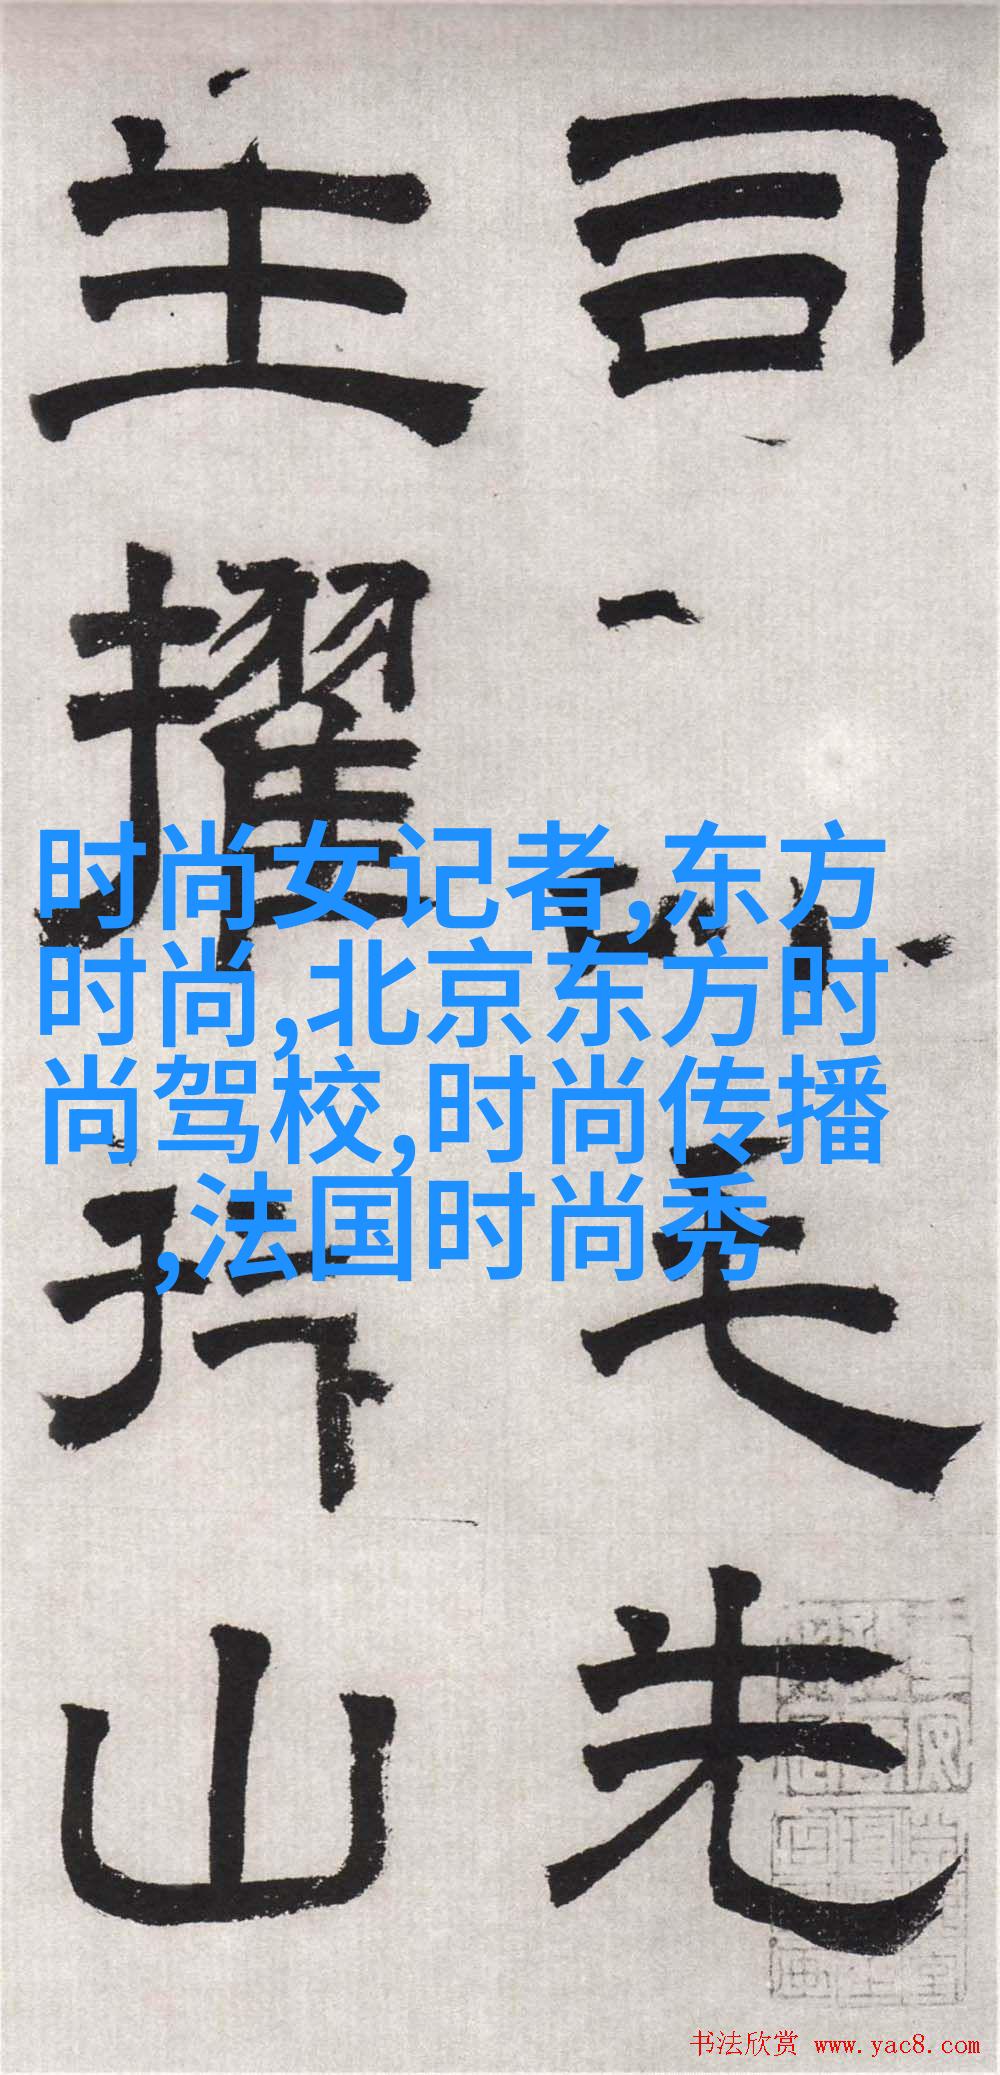 司
毛
先
主
擢
拜
山
时尚女记者,东方
时尚,北京东方时
尚驾校,时尚传播
,法国时尚秀
书法欣赏 www.yac8.com